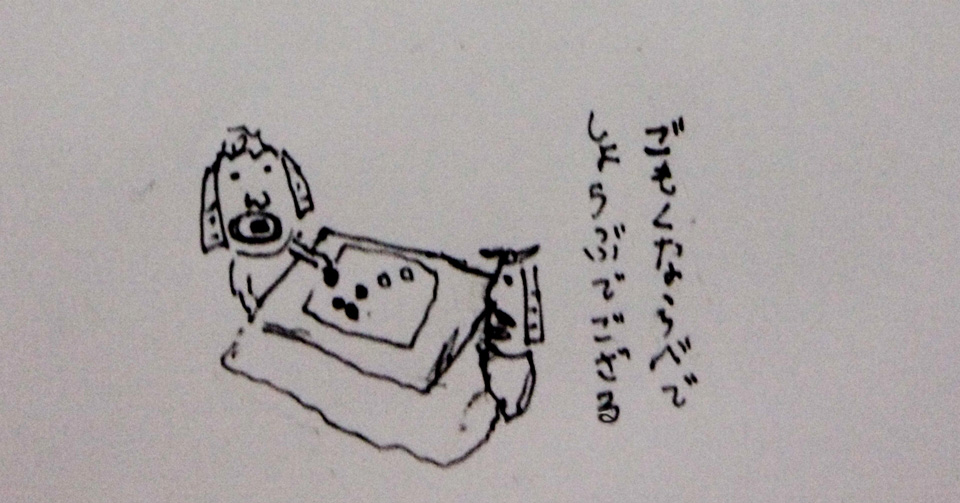 ごもくならべで
しょうぶでござる